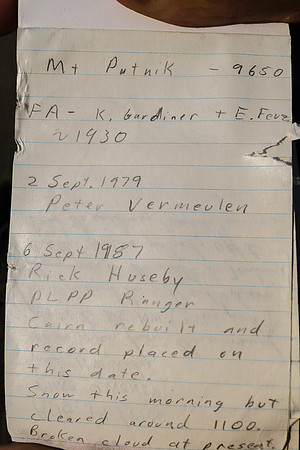 Mt Putnik - 9650
FA - K. Gardiner + E. Feuz
~ 1930
2 Sept. 1979
Peter Vermeulen
6 Sept 1987
Rick Huseby
PLPP Ranger
Cairn rebuilt and
record placed on
this date.
Snow this morning but
cleared around 1100.
Broken cloud at present.